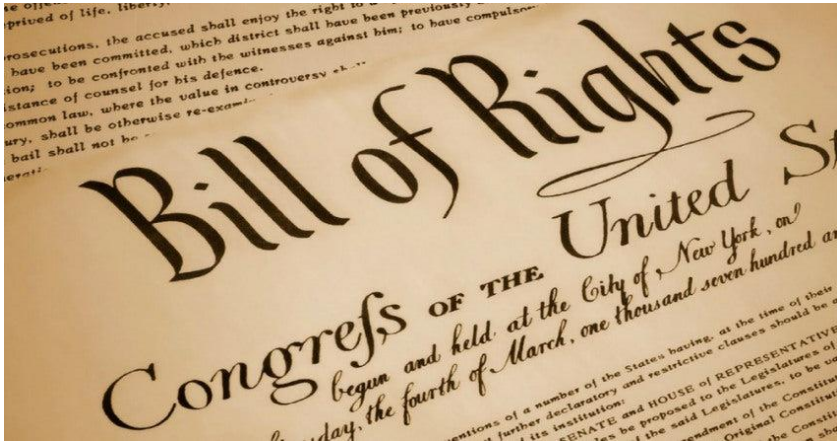 prived of life, liberty,
rosecutions, the accused shall enjoy the right to
have been committed, which district shall have been previously
ion; to be confronted with the witnesses against him; to have compulsor
istance of counsel for his defence.
ommon law, where the value in controversy shall
ury, shall be otherwise re-exami
bail shall not be
Bill of Rights
Congreſs OF THE United St
begun and held at the City of New York, on
day, the fourth of March, one thousand seven hundred an
entions of a number of the States having, at the time of their
further declaratory and restrictive clauses should be a
nd its institution:
SENATE and HOUSE of REPRESENTATIVE
es be proposed to the Legislatures of
the said Legislatures, to be va
endment of the Constitu
Original Constitut
the Constit